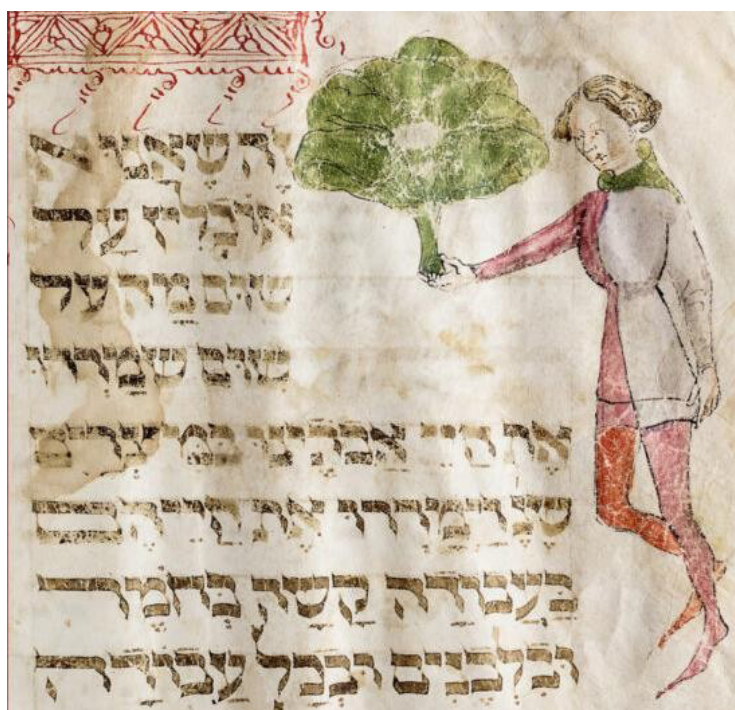 זֶה שֶׁאָנוּ א
אוֹכְלִין עַל
שׁוּם מַה עַל
שׁוּם שֶׁמֵּרְרוּ
אֶת חַיֵּי אֲבֹתֵינוּ בְּמִצְרַיִם
שֶׁנֶּ וַיְמָרְרוּ אֶת חַיֵּיהֶם
בַּעֲבוֹדָה קָשָׁה בְּחֹמֶר
וּבִלְבֵנִים וּבְכָל עֲבוֹדָה